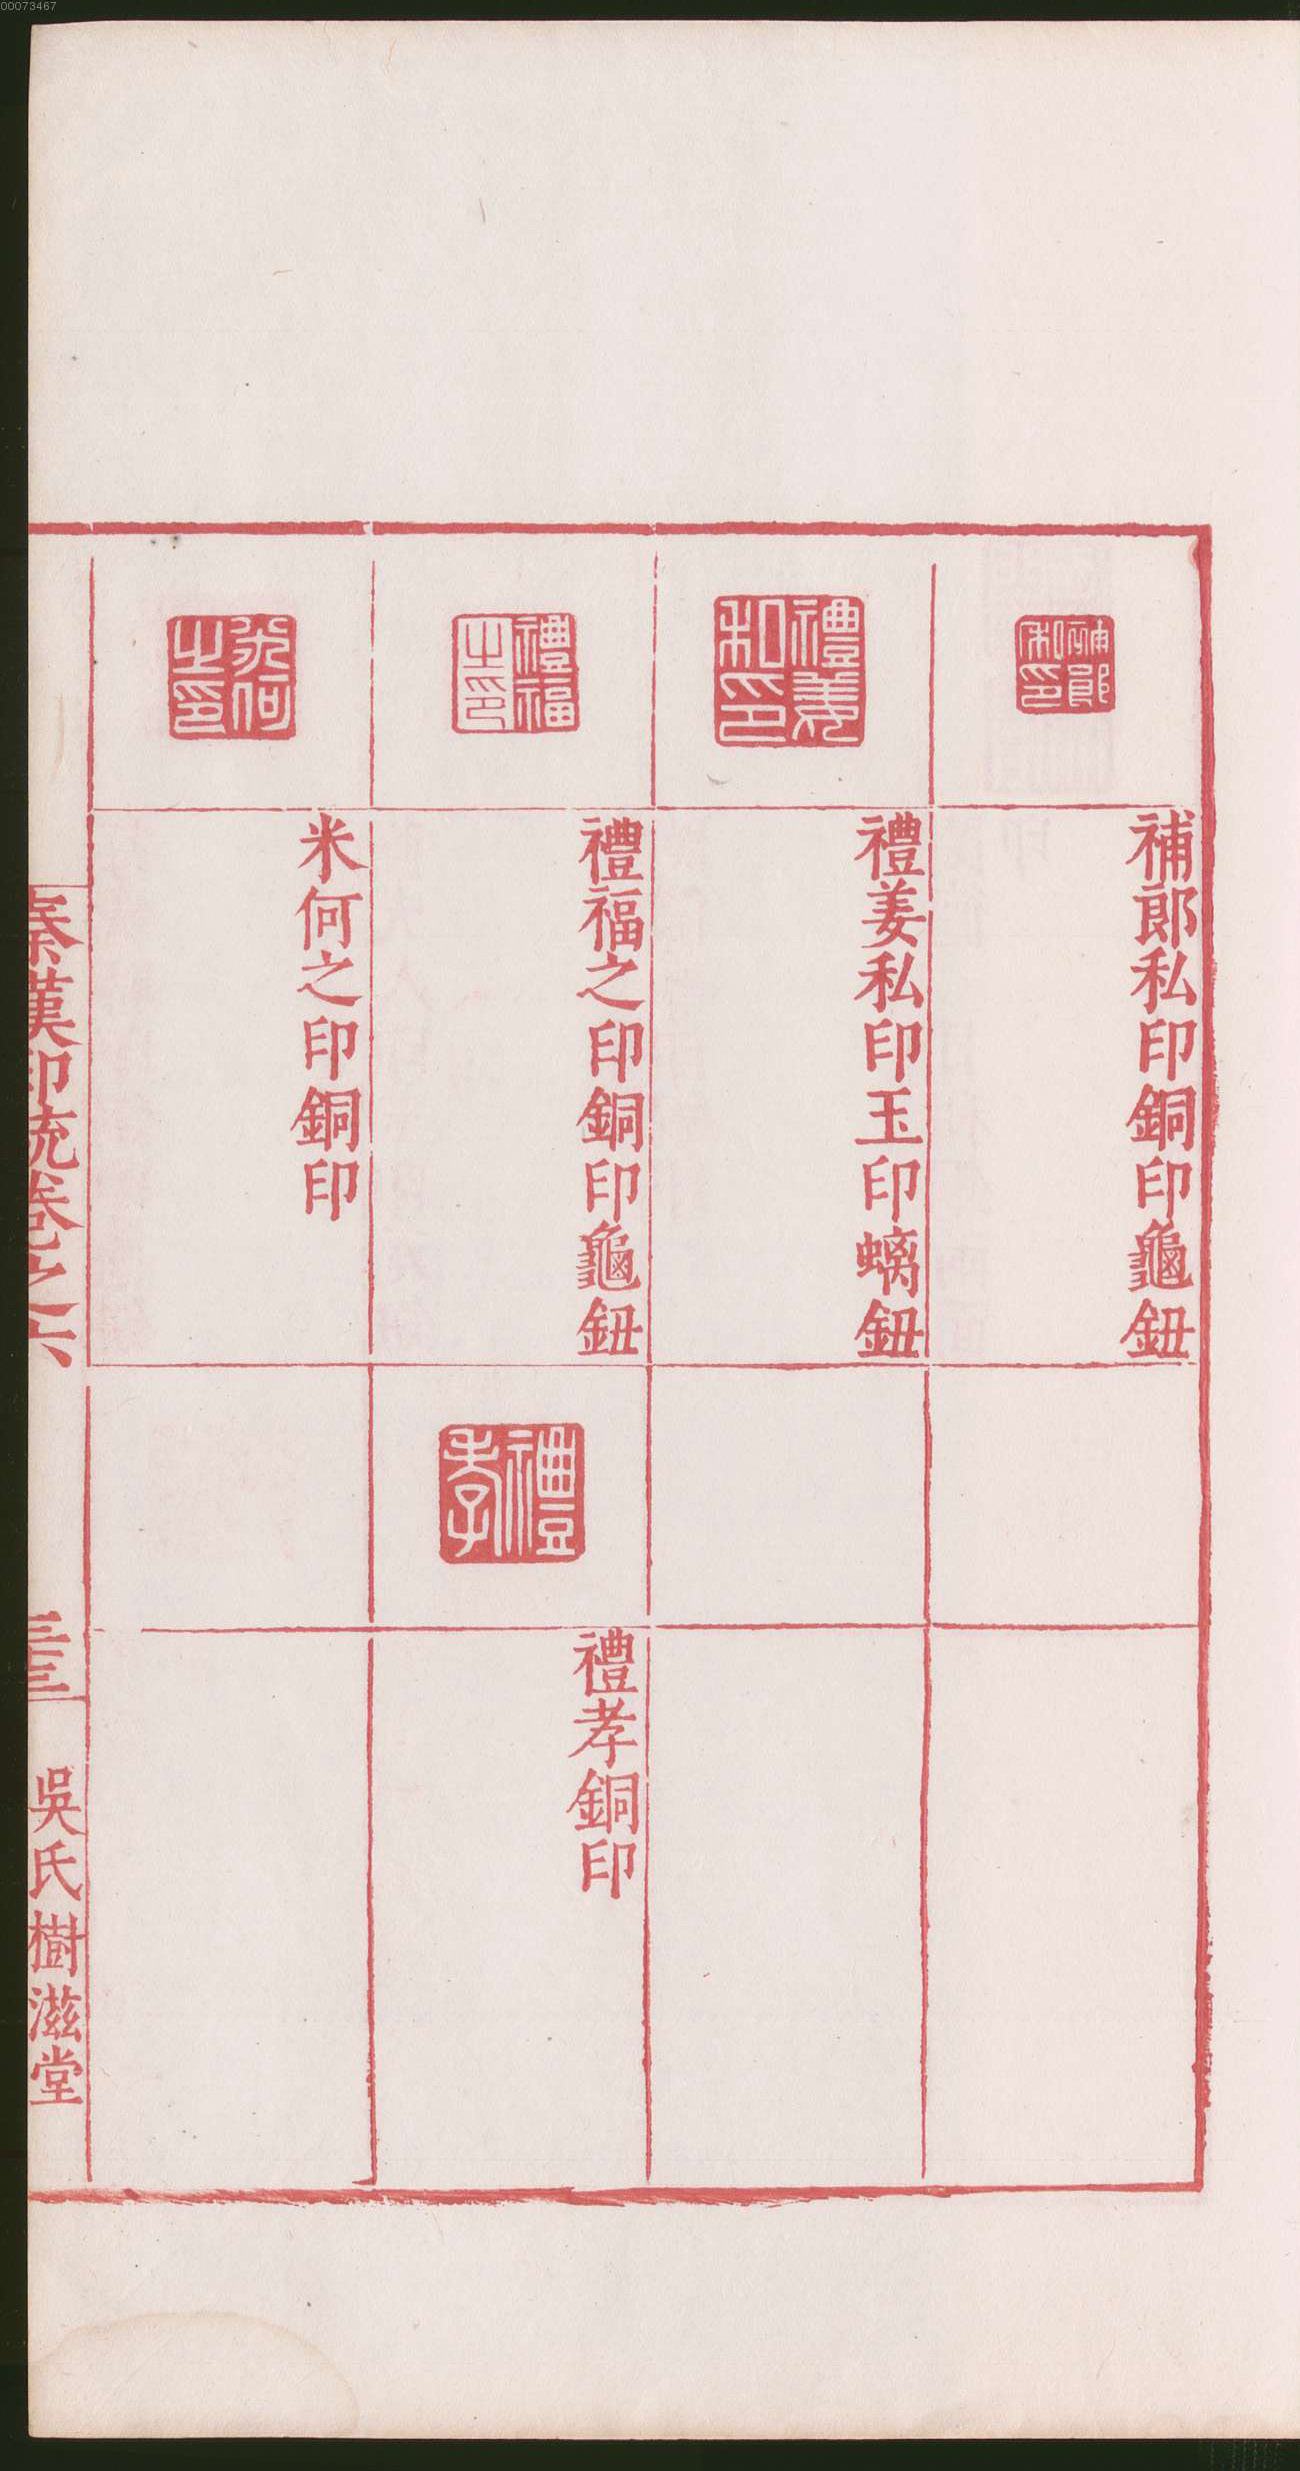 00073467
補郎
私印
補郎私印銅印龜鈕
禮姜
私印
禮姜私印玉印螭鈕
禮福
之印
禮福之印銅印龜鈕
禮孝
禮孝銅印
米何
之印
米何之印銅印
秦漢印統卷之六
三十三
吳氏樹滋堂